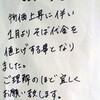 物価上昇に伴い
1月よりそば代金を
値上げする事となり
ました。
ご理解のほど宜しく
お願い致します。